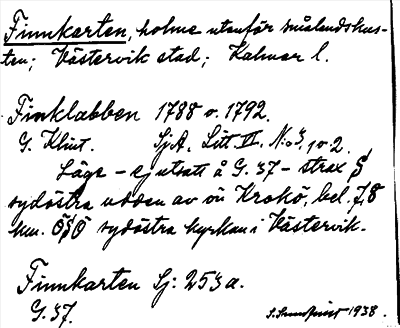 Finnkarten, holme utanför smålandskus-
ten; Västervik stad; Kalmar l.
Finklabben 1788 o. 1792.
G. Klint. Sj.A. Litt. II. N:o 3, 1 o 2.
Läge – ej utsatt å G. 37 – strax S
sydöstra udden av ön Krokö, bel. 7,8
km. ÖSÖ sydöstra kyrkan i Västervik.
Finnkarten Sj: 253a.
G. 37. S. Sundqvist 1938.